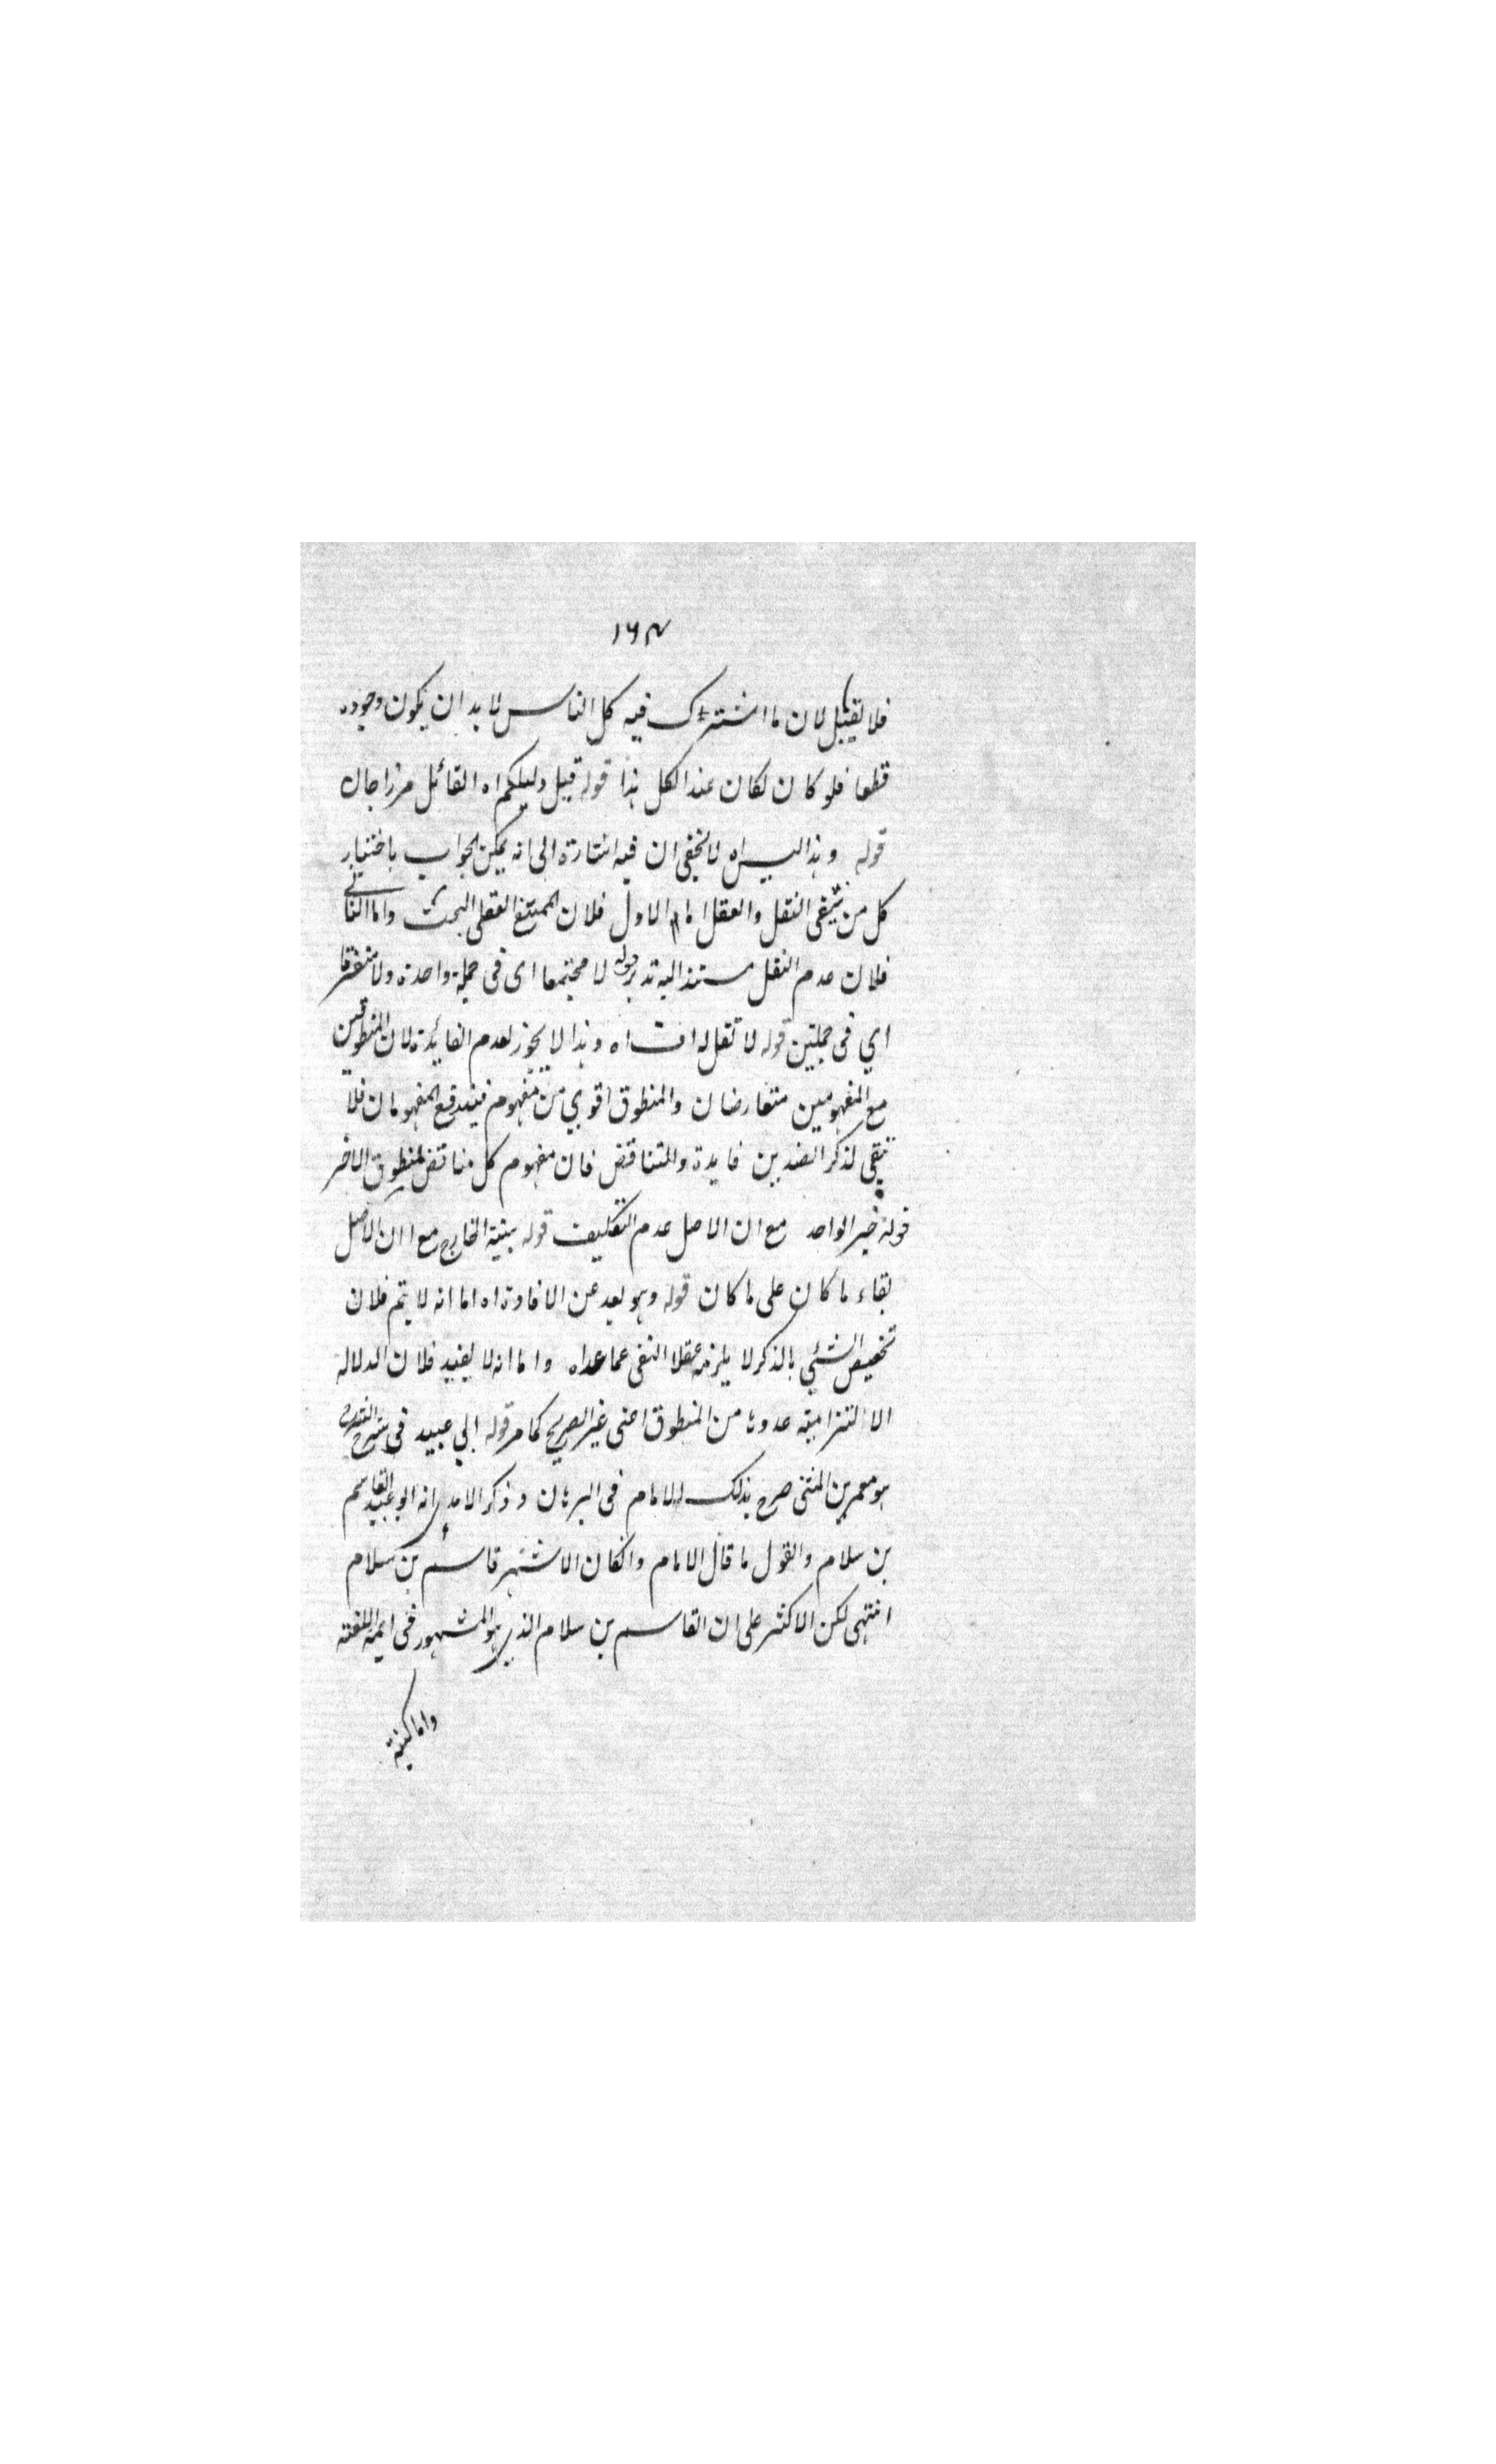 ١٦٣
فلا يقبل لان ما اشترك فيه كل الناس لا بد ان يكون وجوده
قطعا فلو كان لكان عند الكل هذا قوله قيل دليلكم اه القائل مرزا جان
قوله وهذا ليس اه لا يخفى ان فيه اشارة الى انه يمكن الجواب باختيار
كل من شقى النقل والعقل اما الاول فلان الممتنع العقلى البحت واما الثانى
فلان عدم النقل مستند اليه تدبر قوله لا مجتمعا اى فى جملة واحدة ولا متفرقا
اي فى جملتين قوله لا تقل له اف اه وهذا لا يجوز لعدم الفائدة لان المنطوقين
مع المفهومين متعارضان والمنطوق اقوي من مفهوم فيندفع المفهومان فلا
تبقى لذكر الضدين فايدة والتناقض فان مفهوم كل مناقض لمنطوق الاخر
قوله خبر الواحد مع ان الاصل عدم التكليف قوله بينية الخارج مع ان الاصل
بقاء ما كان على ما كان قوله وهو بعد عن الافادة اه اما انه لا يتم فلان
تخصيص الشئي بالذكر لا يلزمه عقلا النفى عما عداه واما انه لا يفيد فلان الدلالة
الالتزامية عدوها من المنطوق اعنى غير الصريح كما مر قوله ابي عبيد فى شرح
هو معمر بن المثنى صرح بذلك الامام فى البرهان وذكر الامدي انه ابو عبيد القاسم
بن سلام والقول ما قال الامام وانكان الاشهر قاسم بن سلام
انتهى لكن الاكثر على ان القاسم بن سلام الذي هو المشهور فى ايمة اللغة
واما كنية